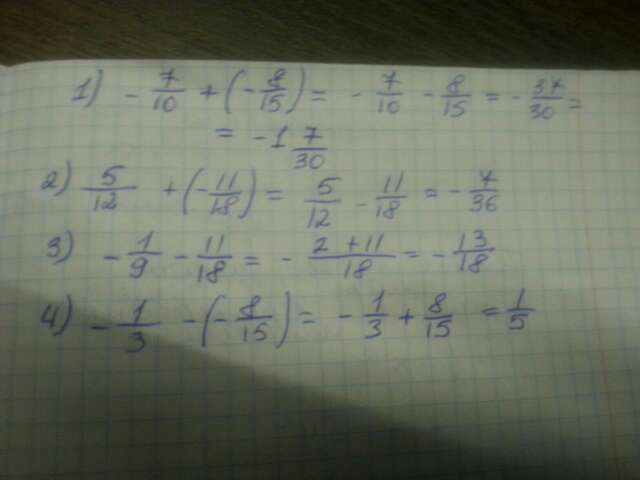 1) - 7/10 + (- 8/15) = - 7/10 - 8/15 = - 37/30 =
= - 1 7/30
2) 5/12 + (- 11/18) = 5/12 - 11/18 = - 7/36
3) - 1/9 - 11/18 = - 2 + 11/18 = - 13/18
4) - 1/3 - (- 8/15) = - 1/3 + 8/15 = 1/5